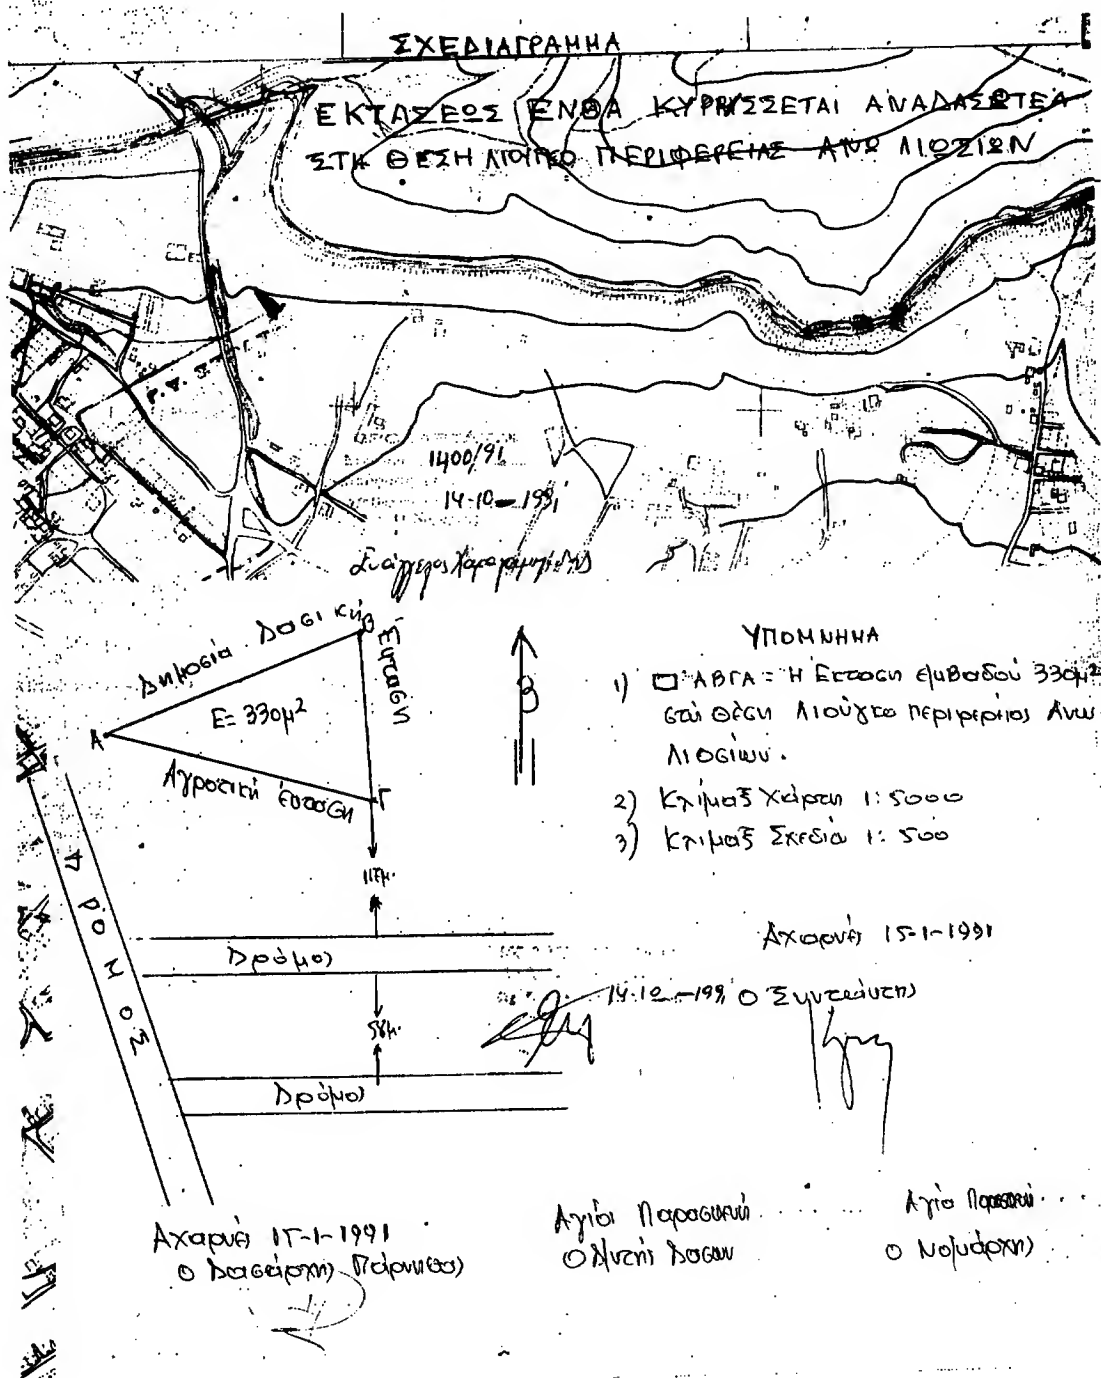 ΣΧΕΔΙΑΓΡΑΜΜΑ
ΕΚΤΑΣΕΩΣ ΕΝΘΑ ΚΥΡΗΣΣΕΤΑΙ ΑΝΑΔΑΣΩΤΕΑ
ΣΤΗ ΘΕΣΗ ΛΙΟΥΓΚΟ ΠΕΡΙΦΕΡΕΙΑΣ ΑΝΩ ΛΙΟΣΙΩΝ
1400/91
14-10-1991
Δημοσία Δασική Έκταση
Α
Β
Γ
Ε= 330μ²
Αγροτική έκταση
117μ.
ΔΡΟΜΟΣ
Δρόμος
58μ.
Δρόμος
Β
ΥΠΟΜΝΗΜΑ
1) ΑΒΓΑ = Η Έκταση εμβαδού 330μ²
στη θέση Λιούγκο περιφερείας Άνω
Λιοσίων.
2) Κλίμαξ Χάρτη 1:5000
3) Κλίμαξ Σχεδία 1:500
Αχαρνές 15-1-1991
14-10-1991 Ο Συντάκτης
Αχαρνές 15-1-1991
Ο Δασάρχης Πάρνηθας
Αγία Παρασκευή
Ο Δ/ντής Δασών
Αγία Παρασκευή
Ο Νομάρχης